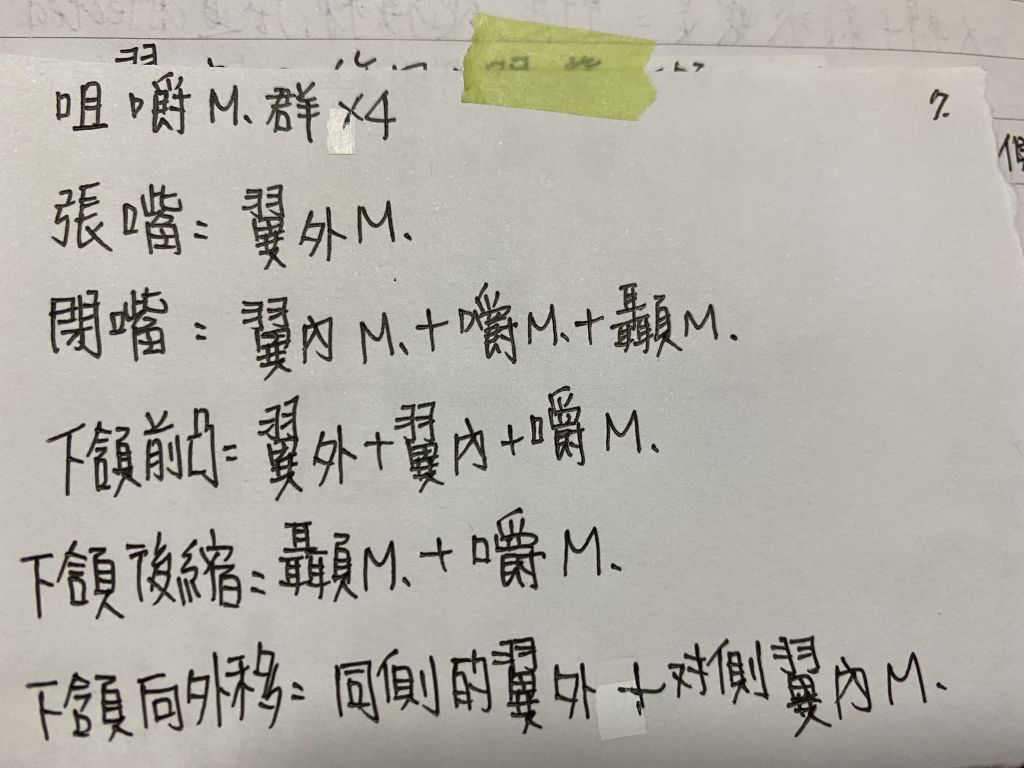 咀嚼M.群×4
7.
張嘴= 翼外M.
閉嘴= 翼內M.+嚼M.+顳M.
下頜前凸= 翼外+翼內+嚼M.
下頜後縮= 顳M.+嚼M.
下頜向外移= 同側的翼外+对側翼內M.